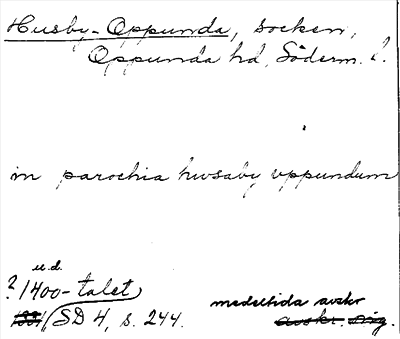 Husby-Oppunda, socken,
Oppunda hd, Söderm. l.
in parochia hwsaby vppundum
u.d.
? 1400-talet
1331 (SD 4, s. 244.
medeltida avskr
avskr. orig.